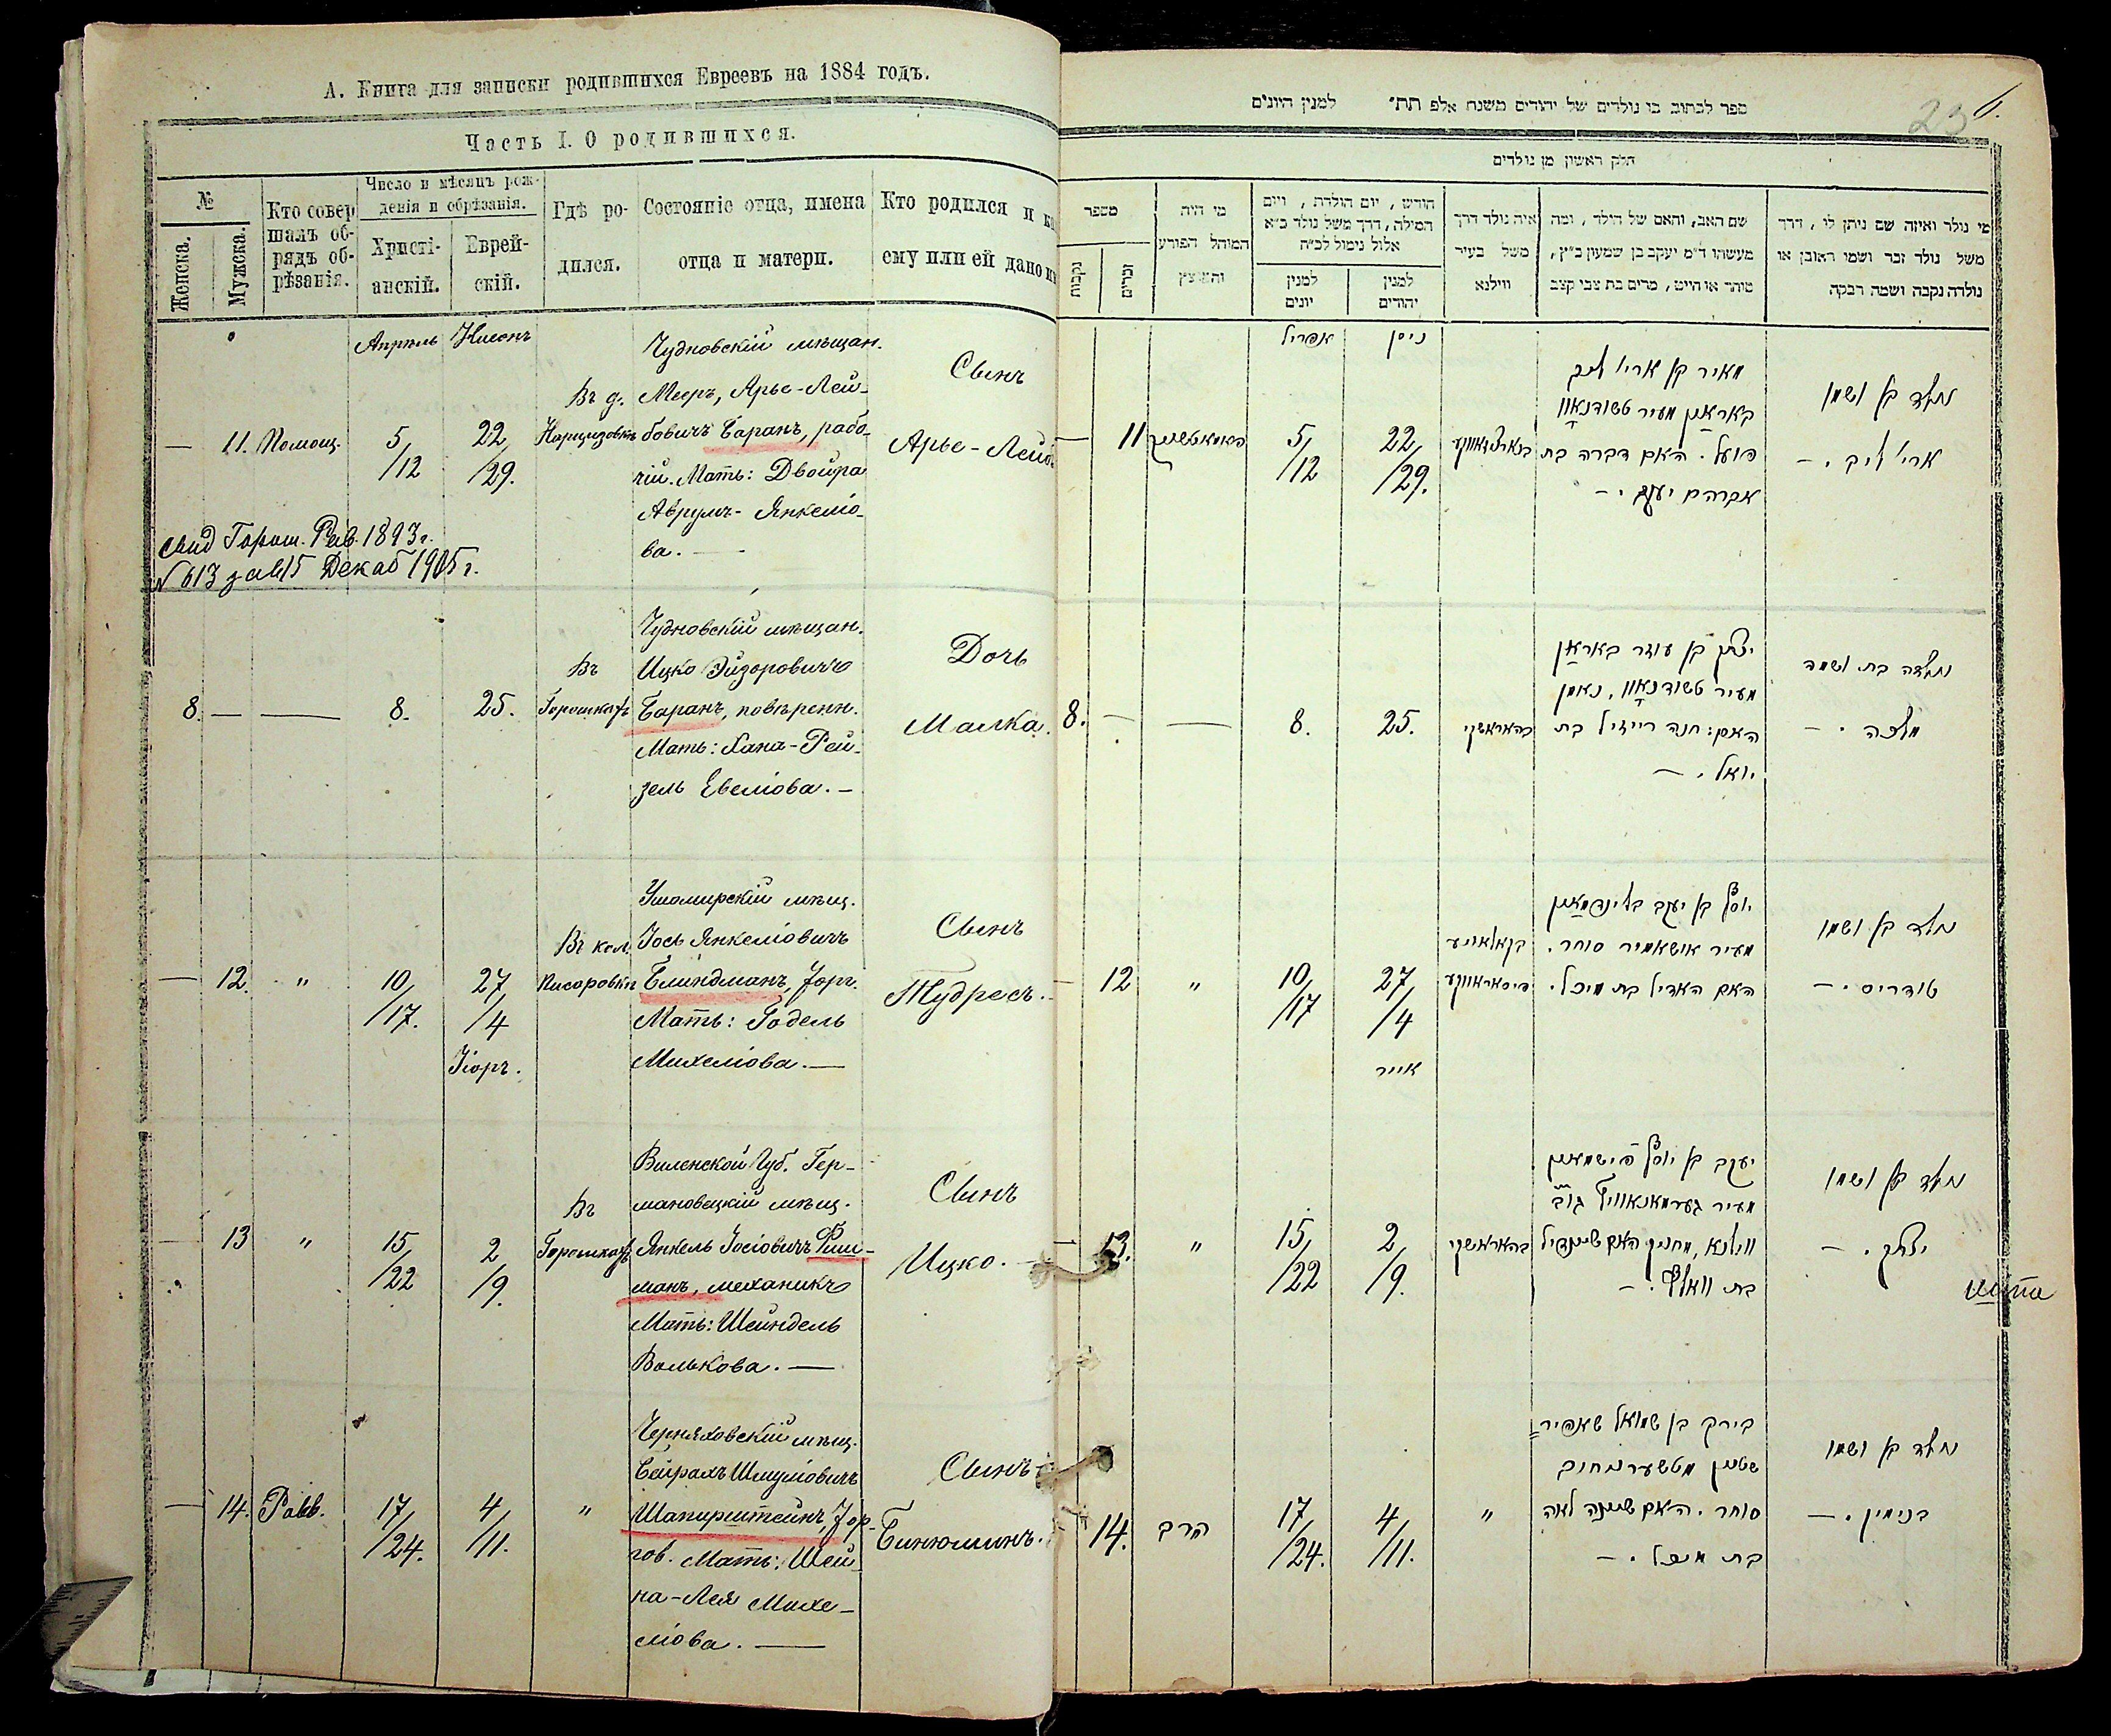 А. Книга для записки родившихся Евреевъ на 1884 годъ.
Часть I. О родившихся.
№
Женска.
Мужска.
Кто совер
шалъ об-
рядъ об-
рѣзанія.
Число и мѣсяцъ рож-
денія и обрѣзанія.
Христі-
анскій.
Еврей-
скій.
Гдѣ ро-
дился.
Состояніе отца, имена
отца и матери.
Кто родился и
ему или ей дано
Апрѣль
Нисонъ
— 11. Помощ.
5/12
22/29.
Въ д.
Чудновскій мѣщан.
Мееръ, Арье-Лей-
бовичъ Баранъ, рабо-
чій. Мать: Двойра
Аврумъ-Янкеліо-
ва. —
Сынъ
Арье-Лейб
свид Горош. Рав. 1893 г.
N 613 за 15 Декаб 1905 г.
8. — —
8.
25.
Въ
Горошкахъ
Чудновскій мѣщан.
Ицко Эйзоровичъ
Баранъ, повѣренн.
Мать: Хана-Рей-
зель Евеліова. —
Дочь
Малка.
— 12. "
10/17.
27/4
Іоръ.
Въ кол.
Писаровкѣ
Ушомирскій мѣщ.
Іось Янкеліовичъ
Блиндманъ, торг.
Мать: Годель
Михеліова. —
Сынъ
Тудресъ.
— 13 "
15/22
2/9.
Въ
Горошкахъ
Виленской Губ. Гер-
мановецкій мѣщ.
Янкель Іосіовичъ Фиш-
манъ, механикъ
Мать: Шейндель
Волькова. —
Сынъ
Ицко.
— 14. Равв.
17/24.
4/11.
"
Черняховскій мѣщ.
Бейрахъ Шмуліовичъ
Шапирштейнъ, тор-
гов. Мать: Шей-
на-Лея Михе-
ліова. —
Сынъ
Бинюминъ.
23
ספר לכתוב בו נולדים של יהודים משנת אלפ תת״ למנין היונים
חלק ראשון מן נולדים
מספר
נקבות
זכרים
מי היה
המוהל הפורע
והמוצץ
חודש, יום הולדת, ויום
המילה, דרך משל נולד כ״א
אלול נימול לכ״ח
למנין
יונים
למנין
יהודים
איה נולד דרך
משל בעיר
ווילנא
שם האב, והאם של הילד, ומה
מעשהו ד״מ יעקב בן שמעון כ״ץ,
סוחר או חייט, מרים בת צבי קצב
מי נולד ואיזה שם ניתן לו, דרך
משל נולד זכר ושמו ראובן או
נולדה נקבה ושמה רבקה
אפריל
ניסן
— 11
5/12
22/29.
מאיר בן ארי׳ ליב
באראן מעיר טשודנאוו
פועל. האם דברה בת
אברהם יעקב. —
נולד בן ושמו
ארי׳ ליב. —
8. — —
8.
25.
בהאראשקי
יצחק בן עוזר באראן
מעיר טשודנאוו, נאמן
האם: חנה רייזיל בת
יואל. —
נולדה בת ושמה
מלכה. —
— 12 "
10/17
27/4
אייר
בקאלאניע
פיסאראווקע
יוסף בן יעקב בלינדמאן
מעיר אושאמיר סוחר.
האם האדיל בת מיכל.
נולד בן ושמו
טודריס. —
— 13. "
15/22
2/9.
בהאראשקי
יעקב בן יוסף פישמאן
מעיר גערמאנאוויץ גוב
ווילנא, האם שיינדיל
בת וואלף. —
נולד בן ושמו
יצחק. —
14. הרב
17/24.
4/11.
"
בירך בן שמואל שאפיר=
שטיין מטשערניחוב
סוחר. האם שיינה לאה
בת מיכל. —
נולד בן ושמו
בנימין. —